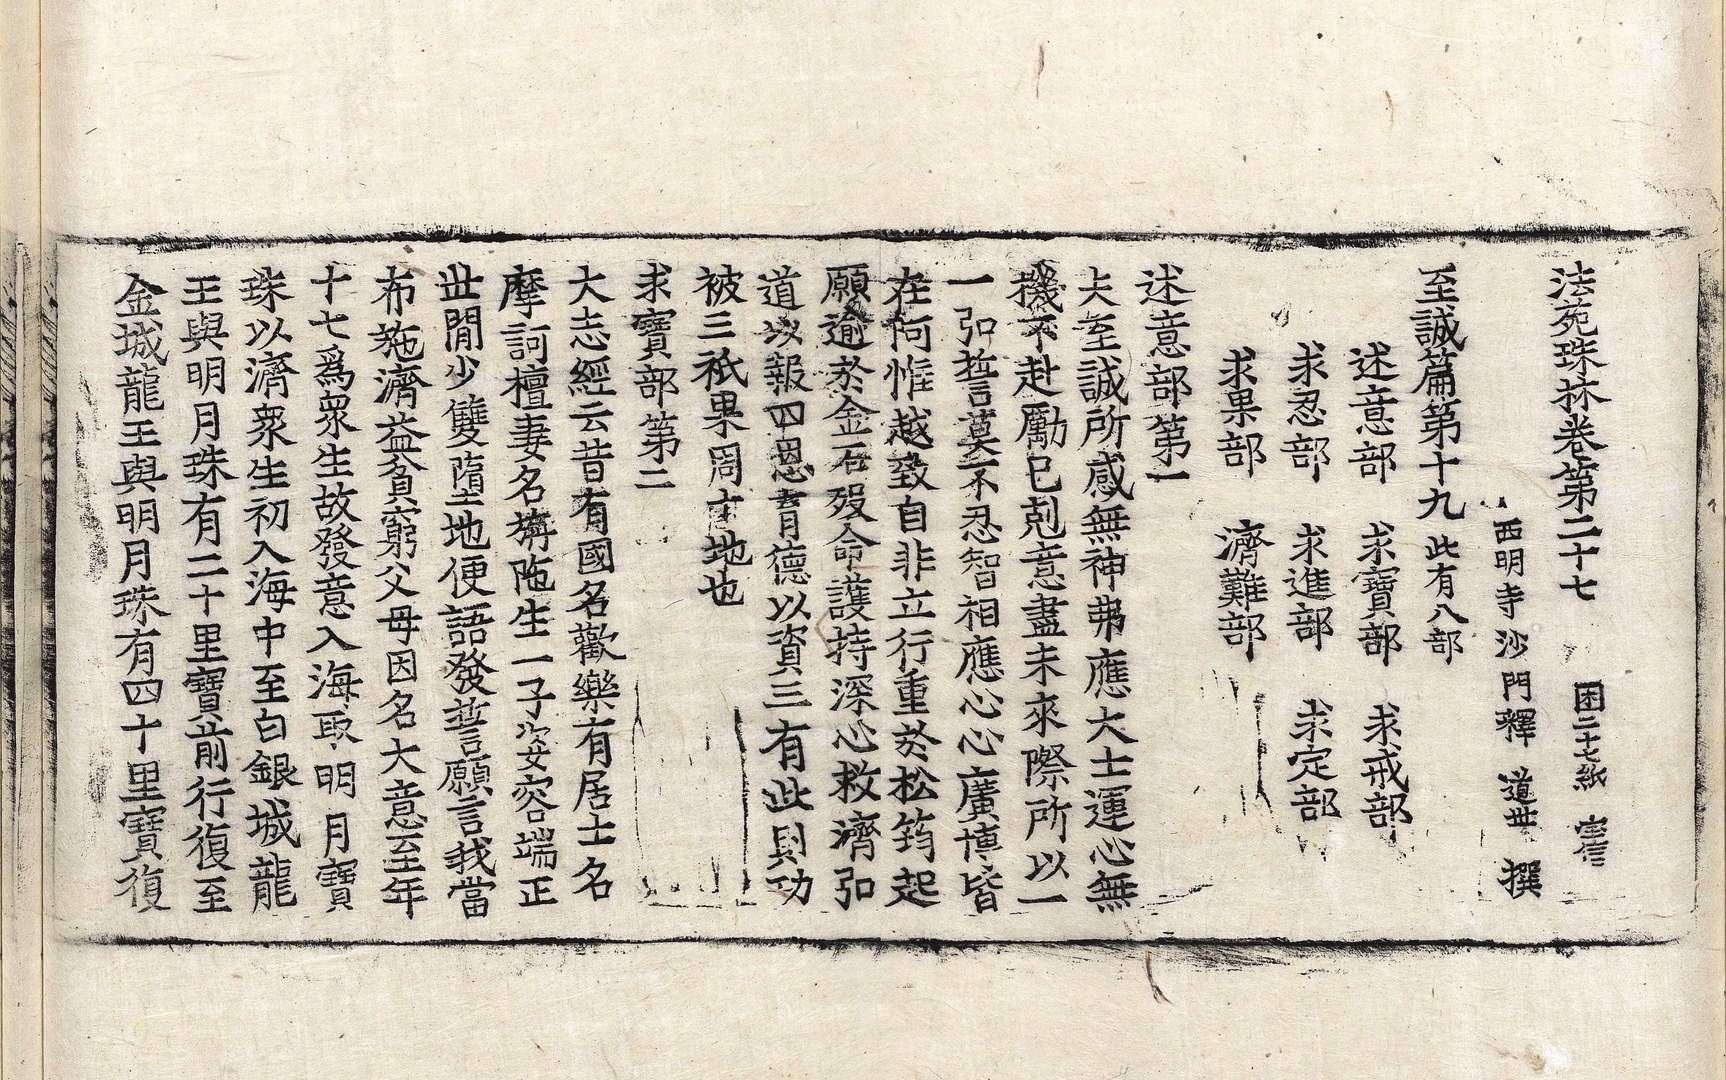 法苑珠林卷第二十七　困 二十七紙
西明寺沙門釋　道世　撰
至誠篇第十九 此有八部
述意部　求寶部　求戒部
求忍部　求進部　求定部
求果部　濟難部
述意部第一
夫至誠所感無神弗應大士運心無
機不赴勵已剋意盡未來際所以一
一弘誓莫不忍智相應心心廣博皆
在何惟越致自非立行重於松筠起
願逾於金石殁命護持深心救濟弘
道以報四恩育德以資三有此則功
被三祇果周十地也
求寶部第二
大志經云昔有國名歡樂有居士名
摩訶檀妻名旃陁生一子姿容端正
丗閒少雙墮地便語發誓願言我當
布施濟益貧窮父母因名大意至年
十七爲衆生故發意入海取明月寶
珠以濟衆生初入海中至白銀城龍
王與明月珠有二十里寶前行復至
金城龍王與明月珠有四十里寶復